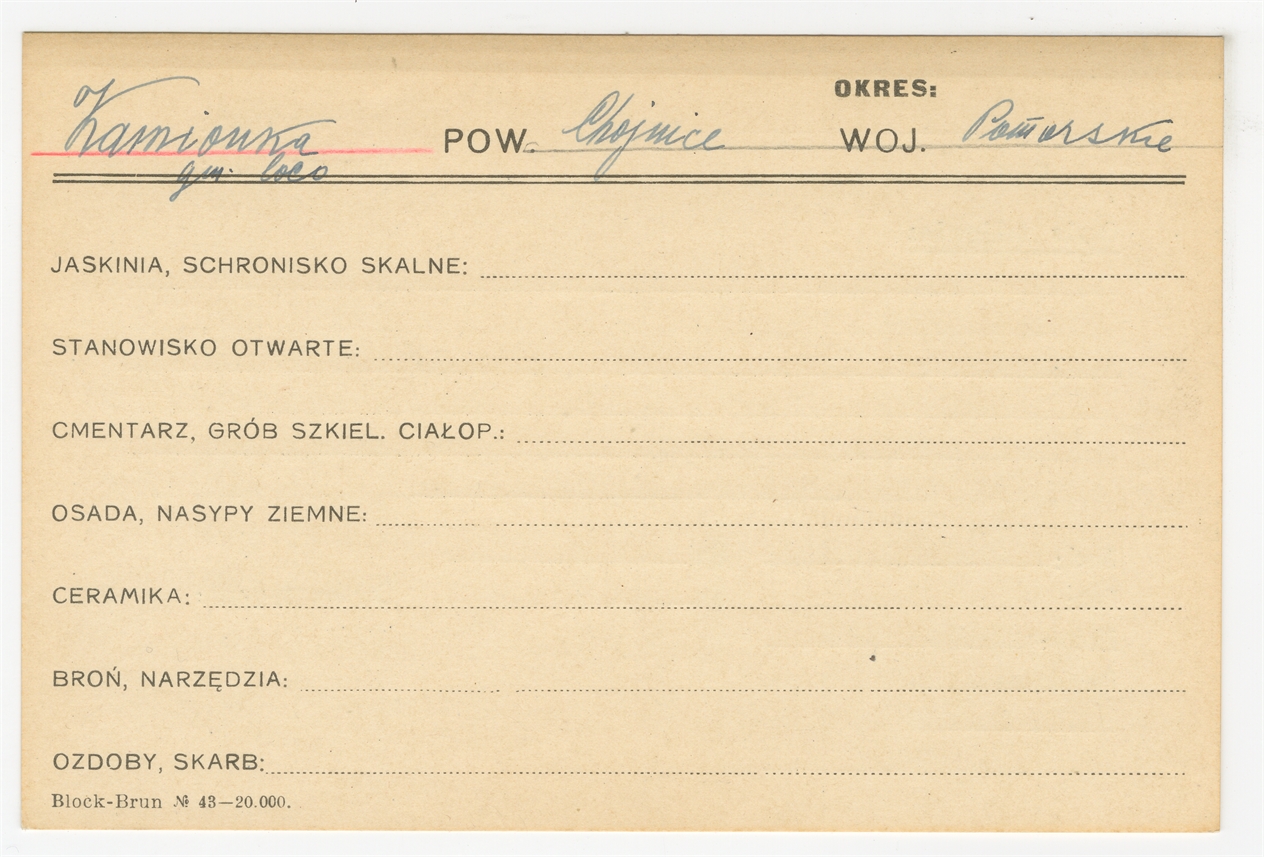 OKRES:
Kamionka POW. Chojnice WOJ. Pomorskie
gm. loco
JASKINIA, SCHRONISKO SKALNE:
STANOWISKO OTWARTE:
CMENTARZ, GRÓB SZKIEL. CIAŁOP.:
OSADA, NASYPY ZIEMNE:
CERAMIKA:
BROŃ, NARZĘDZIA:
OZDOBY, SKARB:
Block-Brun № 43—20.000.